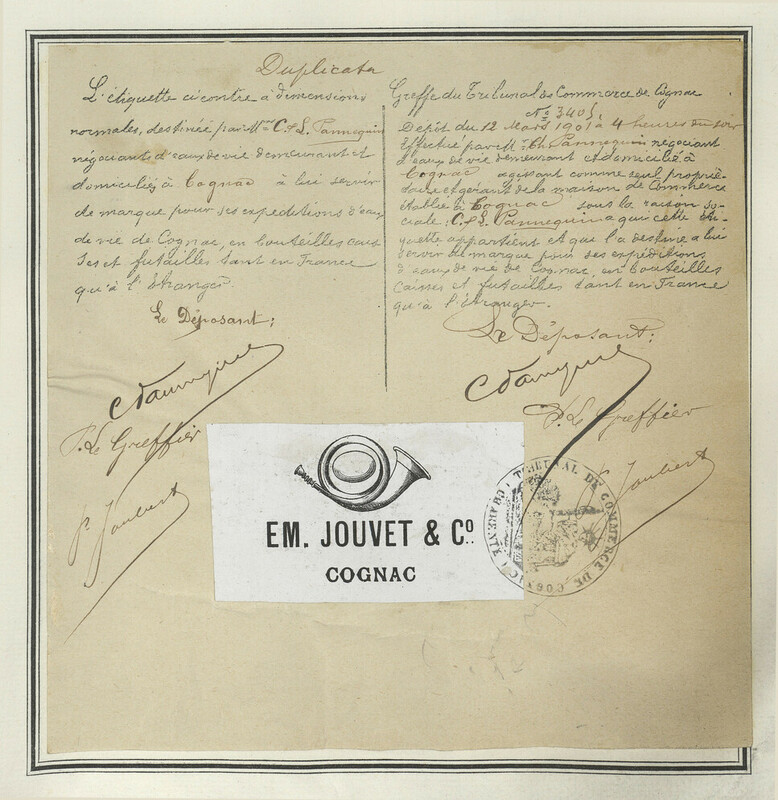 Duplicata
L'étiquette ci contre à dimensions
normales, destinée par Mrs C. & L. Pannequin
négociants d'eaux de vie demeurant et
domiciliés à Cognac à lui servir
de marque pour ses expéditions d'eaux
de vie de Cognac, en bouteilles cais
ses et futailles tant en France
qu'à l'Etranger.
Le Déposant:
P. Le Greffier
P. Joubert
Greffe du Tribunal de Commerce de Cognac
No 3405
Dépôt du 12 Mars 1901 à 4 heures du soir
Effectué par Mr Ch. Pannequin négociant
d'eaux de vie demeurant et domicilié à
Cognac agissant comme seul proprié-
taire et gérant de la maison de Commerce
établie à Cognac sous la raison so-
ciale: C. & L. Pannequin a qui cette éti-
quette appartient et qui l'a destiné a lui
servir de marque pour ses expéditions
d'eaux de vie de Cognac, en bouteilles
caisses et futailles tant en France
qu'à l'étranger.
Le Déposant:
P. Le Greffier
P. Joubert
EM. JOUVET & Co.
COGNAC
TRIBUNAL DE COMMERCE DE COGNAC (CHARENTE)